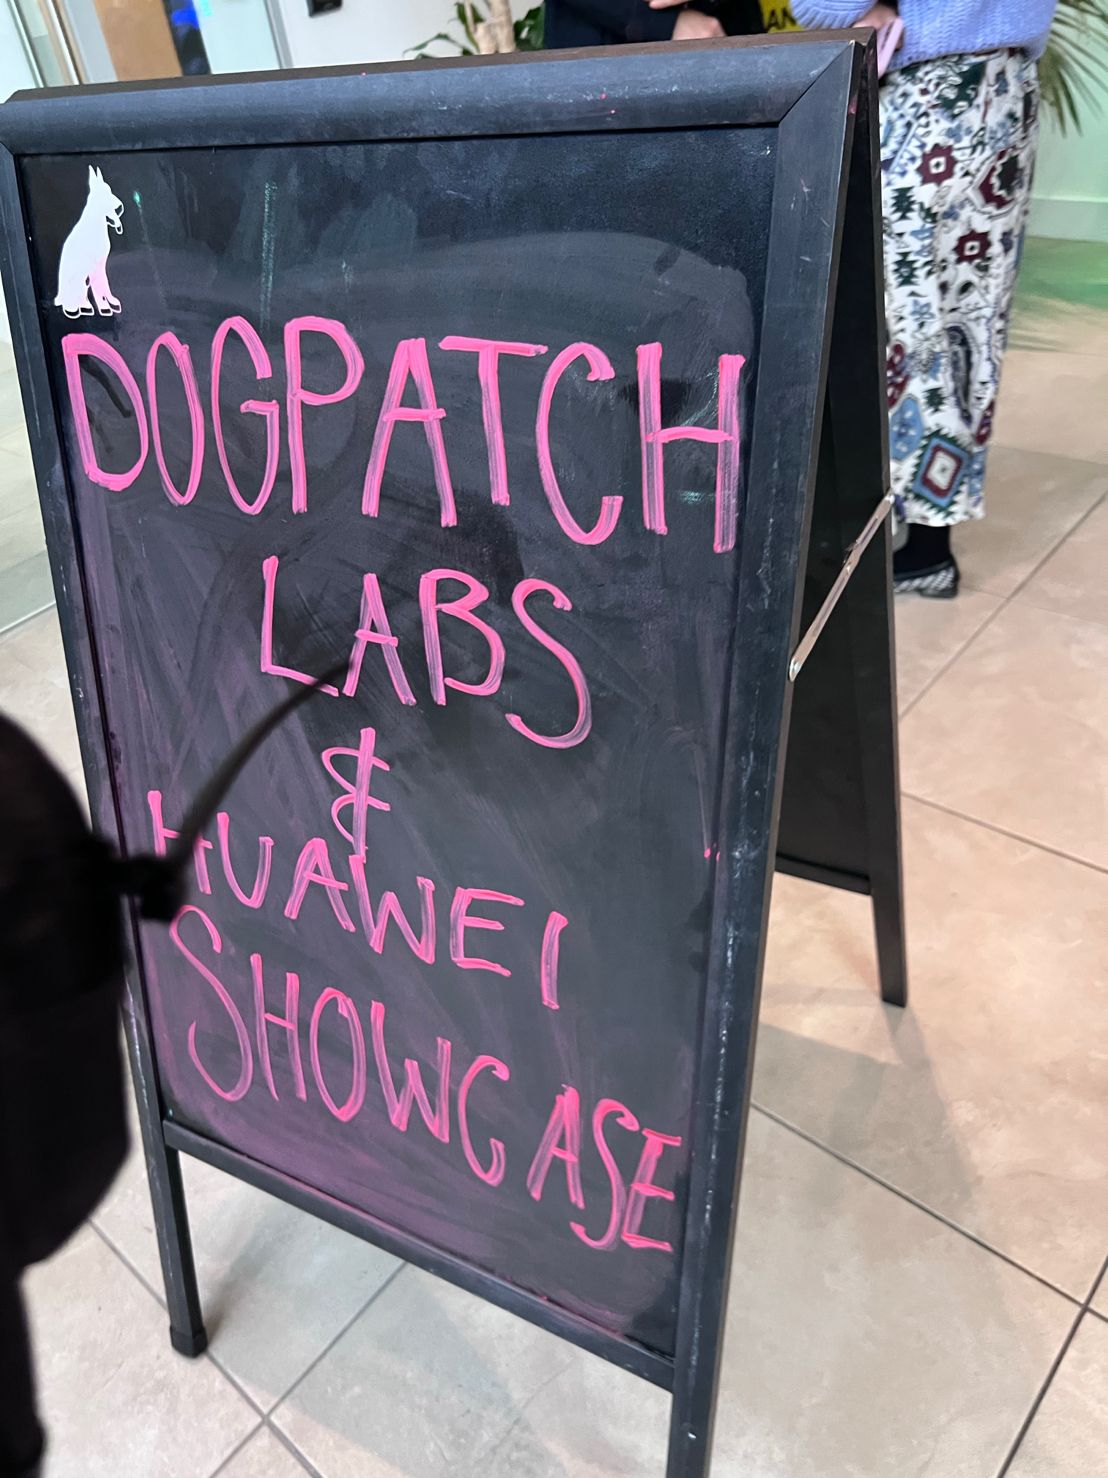 DOGPATCH
LABS
&
HUAWEI
SHOWCASE